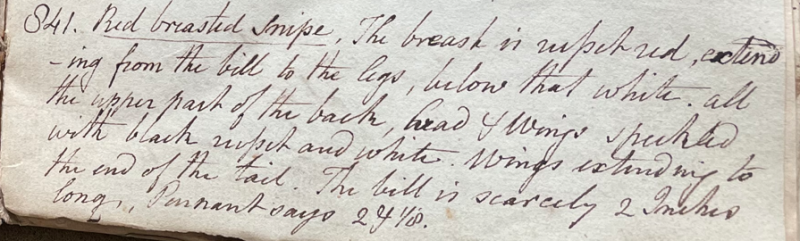 841. Red breasted Snipe, The breast is russet red, extend
-ing from the bill to the legs, below that white. all
the upper part of the back, head & Wings speckled
with black russet and white. Wings extending to
the end of the tail. The bill is scarcely 2 Inches
long, Pennant says 2 & 1/8.